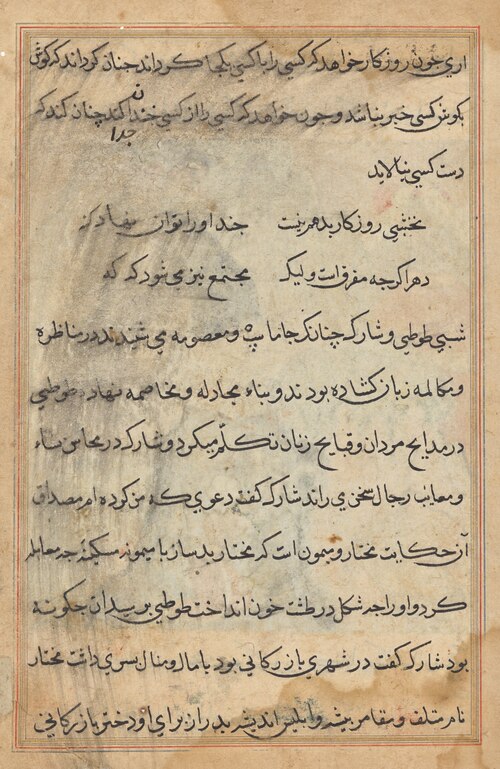 اری چون روزکار خواهد که کسی را با کسی یکجا کرداند جنان کرداند که کوش
بکوش کسی خبر نباشد و جون خواهد که کسی را از کسی جدا کند چنان کند که
دست کسی نیالاید
نخشبی روزکار بد همریست جند اورا توان نهاد که
دهر اکرجه مفرق است ولیک مجتمع نیز می شود که که
شبی طوطی و شارک چنانک جاما پ و معصومه می شیندند در مناظره
و مکالمه زبان کشاده بودند و بناء مجادله و مخاصمه نهاده طوطی
در مدایح مردان و قبایح زنان تکلّم میکرد و شارک در محاسن نساء
و معایب رجال سخن می راند شارک کفت دعوی که من کرده ام مصداق
آن حکایت مختار و میمون است که مختار بد ساز با میمونه مسکینه جه معامله
کرد و اورا جه شکل در طشت خون انداخت طوطی پرسیدان چکونه
بود شارک کفت در شهری بازرکانی بود با مال و منال پسری داشت مختار
نام متلف و مقامر پیشه و ابلیس اندیشه پدر از برای او دختر بازرکانی